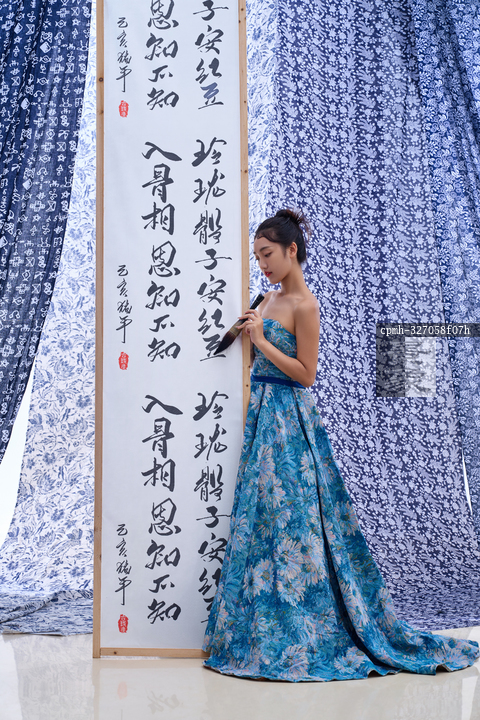 子安红豆
思知不知
己亥猪年
玲珑骰子安红豆
入骨相思知不知
己亥猪年
玲珑骰子安红豆
入骨相思知不知
己亥猪年
cpmh-327058f07h